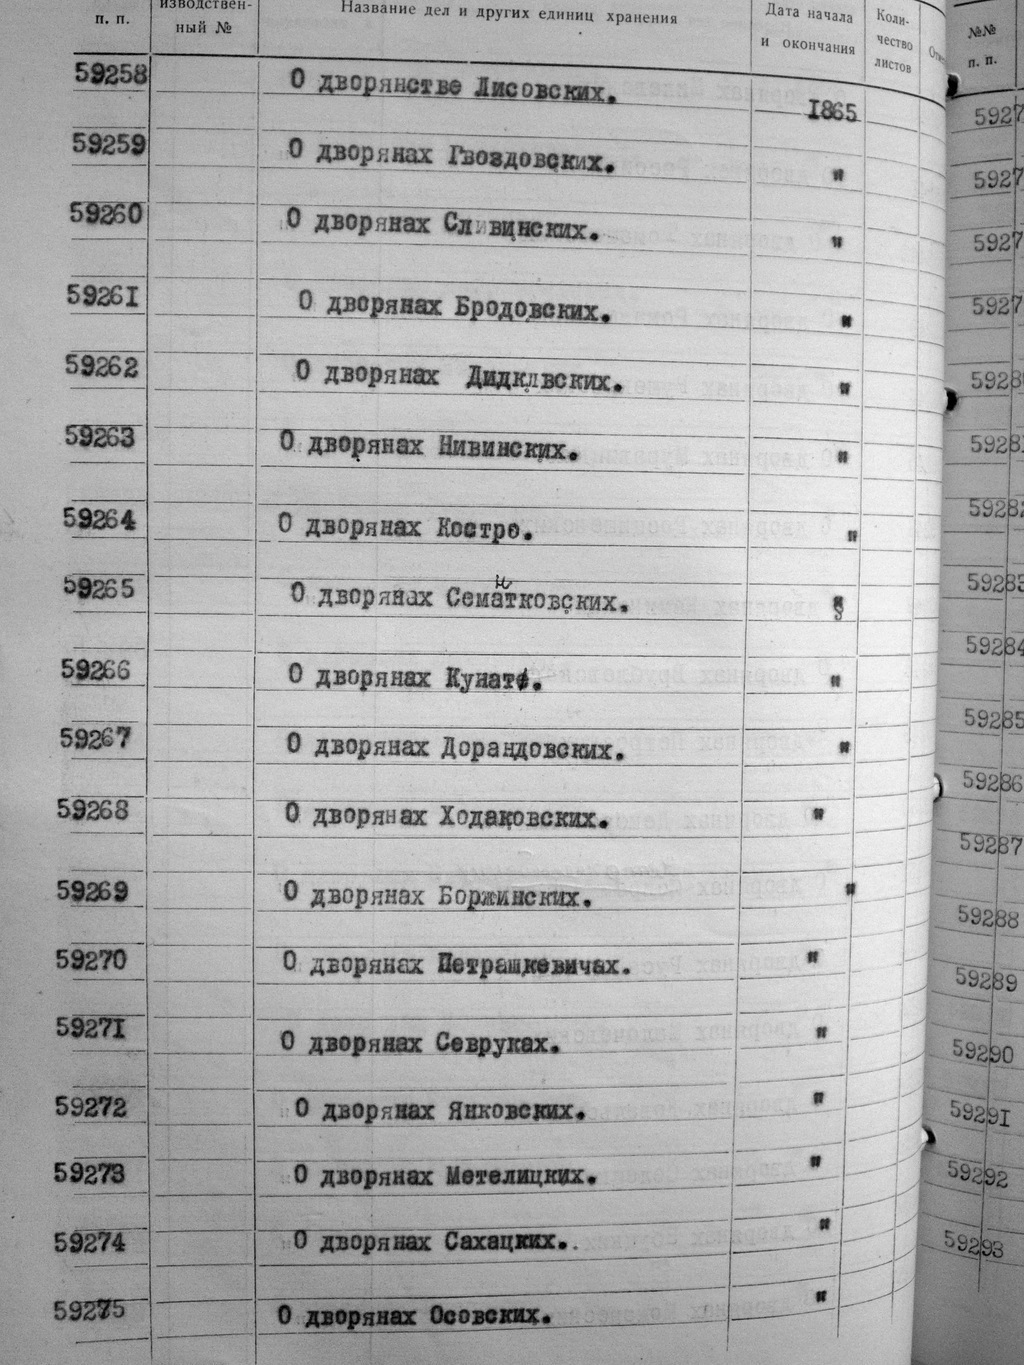 п. п.
изводствен-
ный №
Название дел и других единиц хранения
Дата начала
и окончания
Коли-
чество
листов
№№
п. п.
59258 О дворянстве Лисовских. 1865
59259 О дворянах Гвоздовских. "
59260 О дворянах Сливинских. "
59261 О дворянах Бродовских. "
59262 О дворянах Дидклвских. "
59263 О дворянах Нивинских. "
59264 О дворянах Костро. "
59265 О дворянах Сематковских. "
59266 О дворянах Кунат. "
59267 О дворянах Дорандовских. "
59268 О дворянах Ходаковских. "
59269 О дворянах Боржинских. "
59270 О дворянах Петрашкевичах. "
59271 О дворянах Севруках. "
59272 О дворянах Янковских. "
59273 О дворянах Метелицких. "
59274 О дворянах Сахацких. "
59275 О дворянах Осовских. "
5927
5927
5927
5927
5928
5928
59282
59283
59284
59285
59286
59287
59288
59289
59290
59291
59292
59293